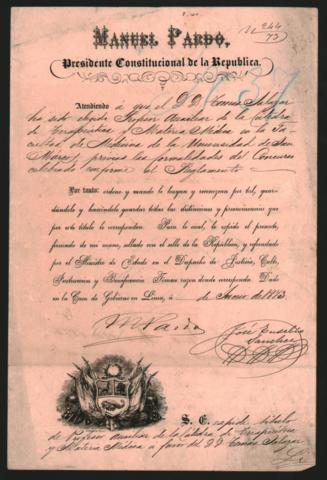 Nº 244
73
MANUEL PARDO,
Presidente Constitucional de la Republica.
637
Atendiendo á que el D. D. Tomás Salazar
ha sido elejido Profesor Auxiliar de la Cátedra
de Terapéutica y Materia Médica en la Fa-
cultad de Medicina de la Universidad de San
Marcos, previas las formalidades del Concurso
celebrado conforme al Reglamento
Por tanto: ordeno y mando lo hayan y reconozcan por tal, guar-
dándole y haciéndole guardar todas las distinciones y preeminencias que
por este título le corresponden. Para lo cual, le expido el presente,
firmado de mi mano, sellado con el sello de la República, y refrendado
por el Ministro de Estado en el Despacho de Justicia, Culto,
Instruccion y Beneficencia. Tómese razon donde corresponda. Dado
en la Casa de Gobierno en Lima, á de Enero de 1873.
M. Pardo
José Eusebio
Sanchez
S. E. expide título
de Profesor Auxiliar de la Cátedra de Terapéutica
y Materia Médica a favor del D. D. Tomás Salazar